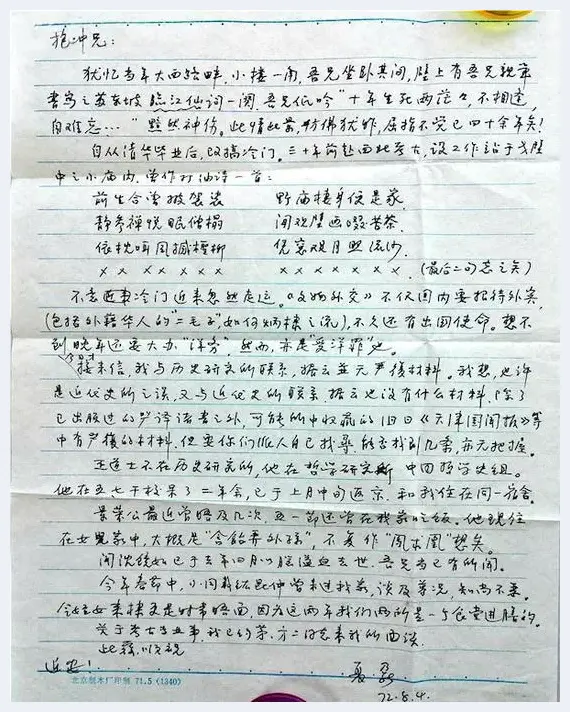 抱冲兄:
犹忆当年大西路畔,小楼一角,吾兄坐卧其间,壁上有吾兄亲笔
书写之苏东坡临江仙词一阕,吾兄低吟“十年生死两茫々,不相逢,
自难忘……”黯然神伤。此情此景,仿佛犹昨,屈指不觉已四十余年矣!
自从清华毕业后,改搞冷门。三十年前赴西北考古,设工作站于戈壁
中之小庙内,曾作打油诗一首:
前生合当披袈裟 野庙栖身便是家
静参禅悦眠僧榻 闲观壁画啜苦茶
依枕听风撼柽柳 凭窗观月照流沙
××××××× ×××××××(最后二句忘之矣)
不意这事冷门近来忽然走运。《文物外交》不仅国内要招待外宾
(包括外籍华人的“二毛子”,如何炳棣之流),不久还有出国使命。想不
到晚年还要大办“洋务”,然而,亦是“受洋罪”也。
接来信,我与历史研究所联系,据云并无严复材料。我想,也许
是近代史所之误,又与近代史所联系,据云也没有什么材料,除了
已出版过的严译诸书之外,可能所中收藏的旧日《天津国闻报》等
中有严复的材料,但要你们派人自己找寻,能否找到几条,亦无把握。
王道士不在历史研究所,他在哲学研究所中国哲学史组。
他在五七干校呆了二年余,已于上月中旬返京,和我住在同一宿舍。
景荣公最近曾晤及几次,五一节还曾在我家吃饭。他现住
在女儿家中,大概是“含饴弄外孙”,不复作“凤求凰”想矣。
闻沈锐如已于去年四月以脑溢血去世,吾兄当已有所闻。
今年春节中,小同
是时常晤面,因为这两年我们两所是一个食堂进膳的。
关于考古专业事,我已约第
来我所面谈。
此覆,顺祝
近安!
夏鼐
72.8.4.
北京制本厂印制 71.5 (1340)